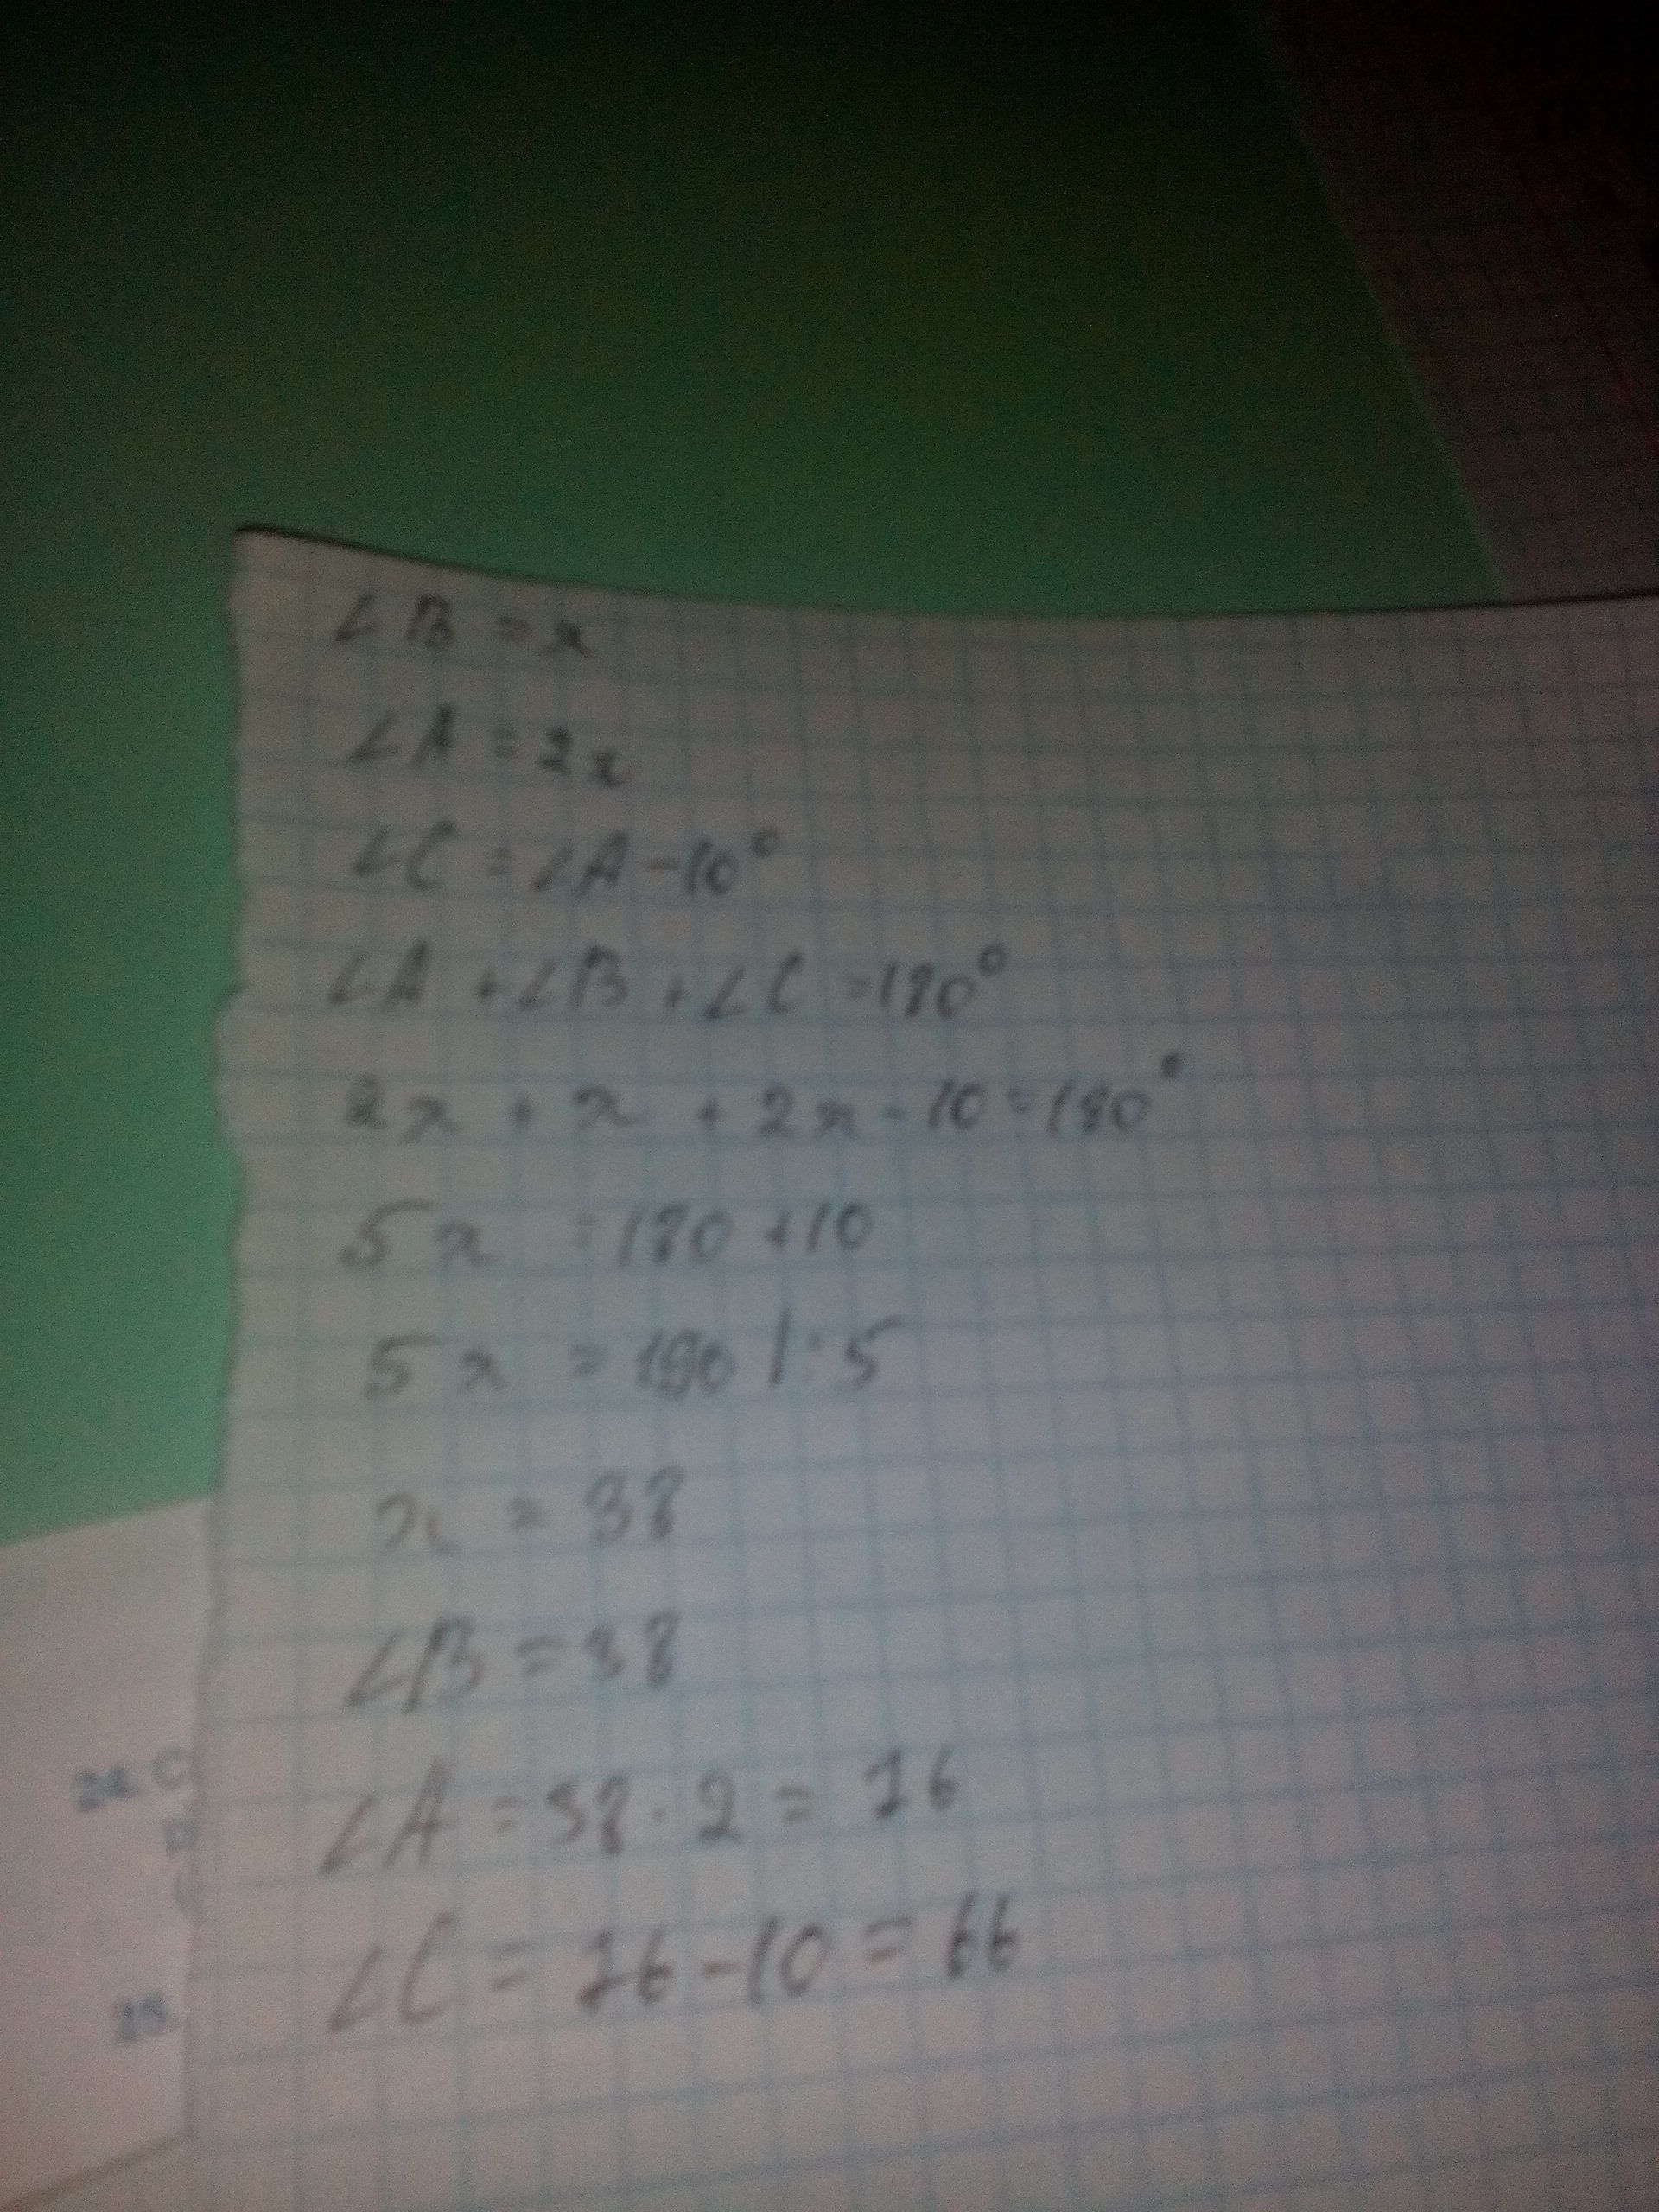 ∠B = x
∠A = 2x
∠C = ∠A - 10°
∠A + ∠B + ∠C = 180°
2x + x + 2x - 10 = 180°
5x = 180 + 10
5x = 190 | : 5
x = 38
∠B = 38
∠A = 38 · 2 = 76
∠C = 76 - 10 = 66
24. C
25.